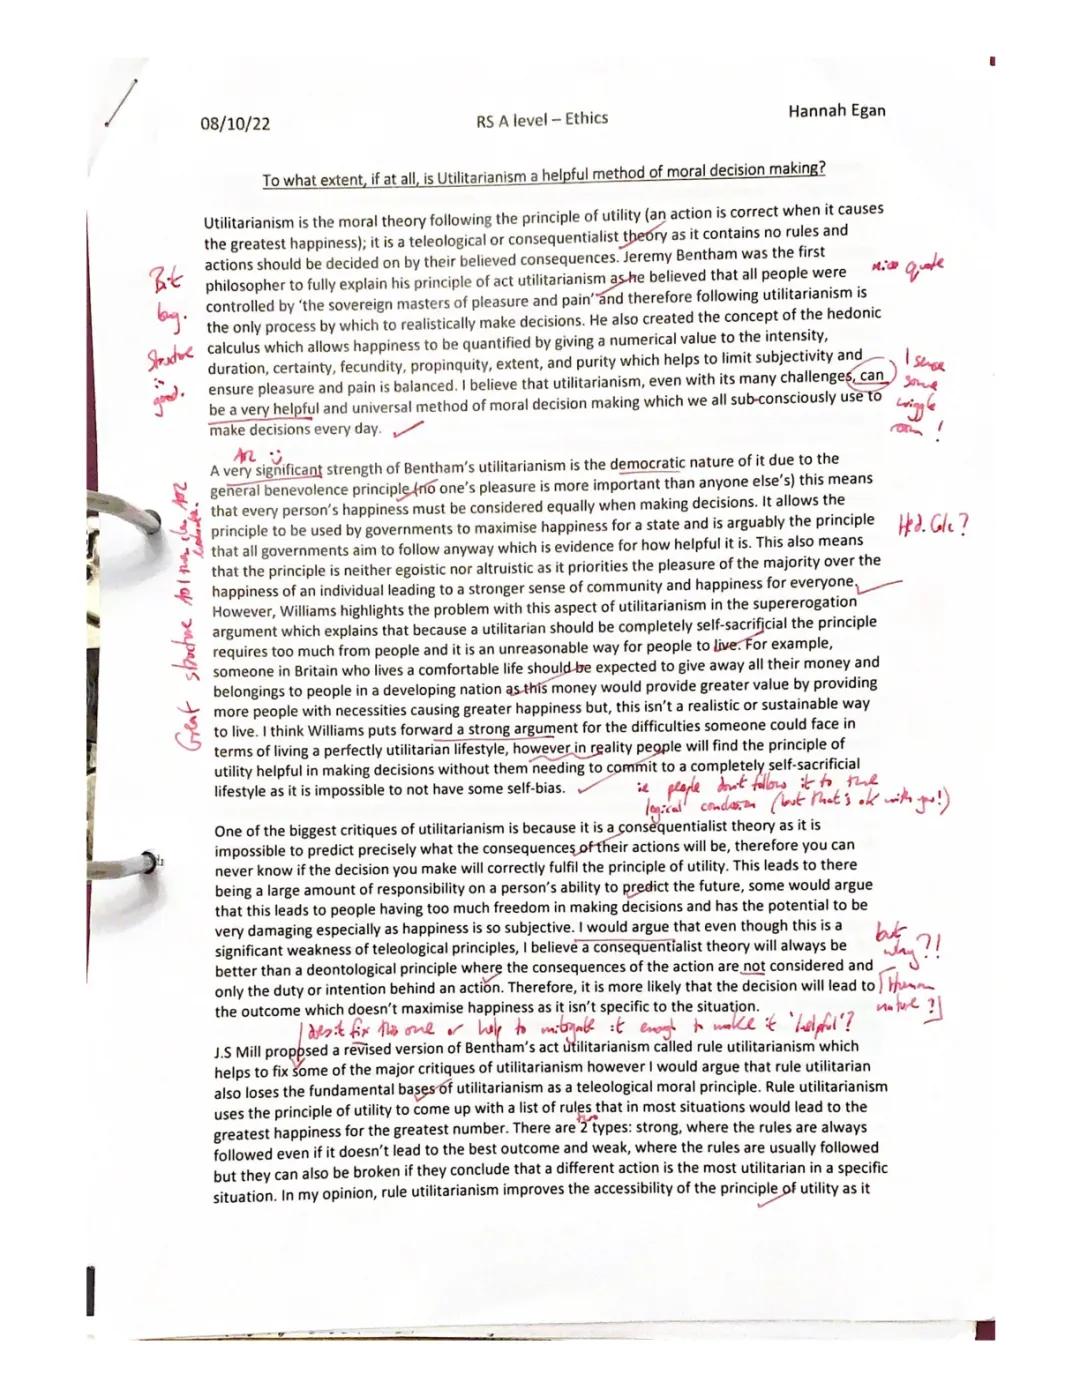 08/10/22
RS A level – Ethics
Hannah Egan
To what extent, if at all, is Utilitarianism a helpful method of moral decision making?
Utilitarianism is the moral theory following the principle of utility (an action is correct when it causes
the greatest happiness); it is a teleological or consequentialist theory as it contains no rules and
actions should be decided on by their believed consequences. Jeremy Bentham was the first
philosopher to fully explain his principle of act utilitarianism as he believed that all people were
controlled by 'the sovereign masters of pleasure and pain' and therefore following utilitarianism is
the only process by which to realistically make decisions. He also created the concept of the hedonic
calculus which allows happiness to be quantified by giving a numerical value to the intensity,
duration, certainty, fecundity, propinquity, extent, and purity which helps to limit subjectivity and
ensure pleasure and pain is balanced. I believe that utilitarianism, even with its many challenges, can
be a very helpful and universal method of moral decision making which we all sub-consciously use to
make decisions every day.
Bit
long.
Structure
good.
nice quote
I sense
some
wiggle
room!
A02
A very significant strength of Bentham's utilitarianism is the democratic nature of it due to the
general benevolence principle (no one's pleasure is more important than anyone else's) this means
that every person's happiness must be considered equally when making decisions. It allows the
principle to be used by governments to maximise happiness for a state and is arguably the principle
that all governments aim to follow anyway which is evidence for how helpful it is. This also means
that the principle is neither egoistic nor altruistic as it priorities the pleasure of the majority over the
happiness of an individual leading to a stronger sense of community and happiness for everyone.
However, Williams highlights the problem with this aspect of utilitarianism in the supererogation
argument which explains that because a utilitarian should be completely self-sacrificial the principle
requires too much from people and it is an unreasonable way for people to live. For example,
someone in Britain who lives a comfortable life should be expected to give away all their money and
belongings to people in a developing nation as this money would provide greater value by providing
more people with necessities causing greater happiness but, this isn't a realistic or sustainable way
to live. I think Williams puts forward a strong argument for the difficulties someone could face in
terms of living a perfectly utilitarian lifestyle, however in reality people will find the principle of
utility helpful in making decisions without them needing to commit to a completely self-sacrificial
lifestyle as it is impossible to not have some self-bias.
Great structure A01 A02
Hed. Calc?
ie people don't follow it to true
logical conclusion (but that's ok with you!)
One of the biggest critiques of utilitarianism is because it is a consequentialist theory as it is
impossible to predict precisely what the consequences of their actions will be, therefore you can
never know if the decision you make will correctly fulfil the principle of utility. This leads to there
being a large amount of responsibility on a person's ability to predict the future, some would argue
that this leads to people having too much freedom in making decisions and has the potential to be
very damaging especially as happiness is so subjective. I would argue that even though this is a
significant weakness of teleological principles, I believe a consequentialist theory will always be
better than a deontological principle where the consequences of the action are not considered and
only the duty or intention behind an action. Therefore, it is more likely that the decision will lead to
the outcome which doesn't maximise happiness as it isn't specific to the situation.
but
why?!
[Human
nature?]
does it fix this one or help to mitigate it enough to make it 'helpful'?
J.S Mill proposed a revised version of Bentham's act utilitarianism called rule utilitarianism which
helps to fix some of the major critiques of utilitarianism however I would argue that rule utilitarian
also loses the fundamental bases of utilitarianism as a teleological moral principle. Rule utilitarianism
uses the principle of utility to come up with a list of rules that in most situations would lead to the
greatest happiness for the greatest number. There are 2 types: strong, where the rules are always
two
followed even if it doesn't lead to the best outcome and weak, where the rules are usually followed
but they can also be broken if they conclude that a different action is the most utilitarian in a specific
situation. In my opinion, rule utilitarianism improves the accessibility of the principle of utility as it